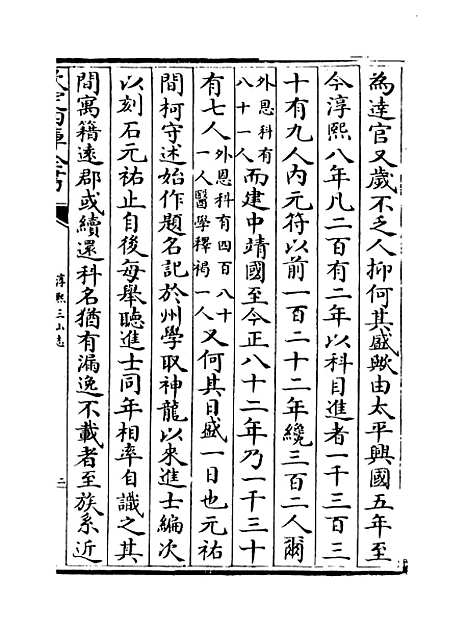 為達官又歲不乏人抑何其盛歟由太平興國五年至
今淳熙八年凡二百有二年以科目進者一千三百三
十有九人内元符以前一百二十二年纔三百二人爾
外恩科有
八十一人
而建中靖國至今正八十二年乃一千三十
有七人
外恩科有四百八十
一人醫學釋褐一人
又何其日盛一日也元祐
間柯守述始作題名記於州學取神龍以來進士編次
以刻石元祐止自後每舉聽進士同年相率自識之其
間寓籍遠郡或續還科名猶有漏逸不載者至族系近
欽定四庫全書
淳熙三山志
二